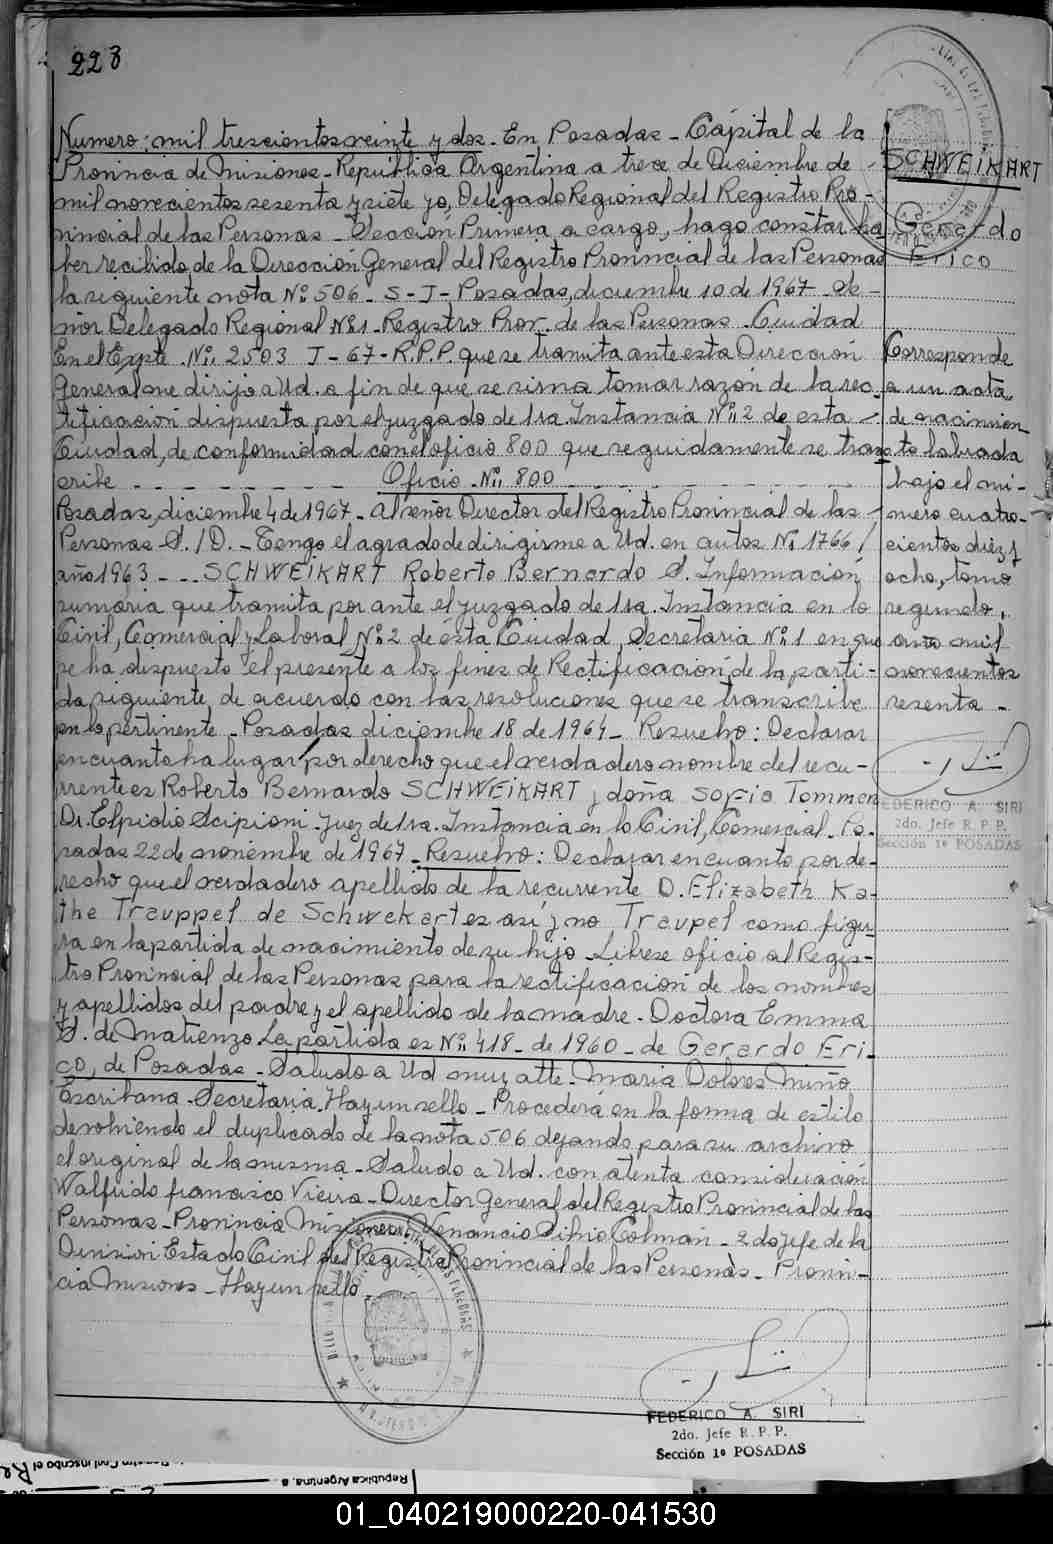 228
Numero: mil trescientos veinte y dos. En Posadas - Cápital de la
Provincia de Misiones - República Argentina a trece de Diciembre de
mil novecientos sesenta y siete yo, Delegado Regional del Registro Pro-
vincial de las Personas - Sección Primera a cargo, hago constar ha
ber recibido, de la Dirección General del Registro Provincial de las Personas
la seguiente nota Nº 506 - S - J - Posadas, diciembre 10 de 1967 - Se-
ñor Delegado Regional Nº 1 - Registro Prov. de las Personas - Ciudad
En el Expte. Nº 2503 J - 67 - R.P.P. que se tramita ante esta Dirección
General me dirijo a Ud. a fin de que se sirva tomar razón de la rec
tificación dispuesta por el juzgado de 1ra. Instancia Nº 2 de esta -
Ciudad, de conformidad con el oficio 800 que seguidamente se trans
cribe - - - - - - - - Oficio Nº 800 - - - - - - - -
Posadas, diciembre 4 de 1967 - Al señor Director del Registro Provincial de las -
Personas S. / D. - Tengo el agrado de dirigirme a Ud. en autos Nº 1766/
año 1963 - - . SCHWEIKART Roberto Bernardo S. Información
sumaria que tramita por ante el juzgado de 1ra. Instancia en lo
Civil, Comercial y Laboral Nº 2 de ésta Ciudad, Secretaria Nº 1 en que
se ha dispuesto el presente a los fines de Rectificación, de la parti-
da siguiente, de acuerdo con las resoluciones que se transcribe
en lo pertinente - Posadas diciembre 18 de 1964 - Resuelvo: Declarar
en cuanto ha lugar por derecho que el verdadero nombre del recu-
rrente es Roberto Bernardo SCHWEIKART y doña Sofia Tommen
Dr. Elpidio Scipioni - Juez de 1ra. Instancia en lo Civil, Comercial - Po-
sadas 22 de noviembre de 1967 - Resuelvo: Declarar en cuanto por de-
recho que el verdadero apellido de la recurrente D. Elizabeth Ka-
the Trauppel de Schwekart es así y no Traupel como figu-
ra en la partida de nacimiento de su hijo - Librese oficio al Regis-
tro Provincial de las Personas para la rectificación de los nombres
y apellidos del padre y el apellido de la madre. Doctora Emma
S. de Matienzo La partida es Nº 418 - de 1960 - de Gerardo Eri-
co, de Posadas - Saludo a Ud muy atte. María Dolores Miño
Escribana - Secretaria. Hay un sello - Procederá en la forma de estilo
devolviendo el duplicado de la nota 506 dejando para su archivo
el original de la misma - Saludo a Ud. con atenta consideración
Walfrido francisco Vieira - Director General del Registro Provincial de las
Personas - Provincia Misiones Venancio Silvio Colman - 2do Jefe de la
Division Estado Civil del Registro Provincial de las Personas - Provin-
cia Misiones - Hay un sello
SCHWEIKART
Gerardo
Erico
Corresponde
a un acta
de nacimien
to labrada
bajo el nú-
mero cuatro-
cientos diez y
ocho, tomo
segundo,
año mil
novecientos
sesenta -
FEDERICO A. SIRI
2do. Jefe R. P. P.
Sección 1º POSADAS
FEDERICO A. SIRI
2do. Jefe R. P. P.
Sección 1º POSADAS
República Argentina, a
01_040219000220-041530